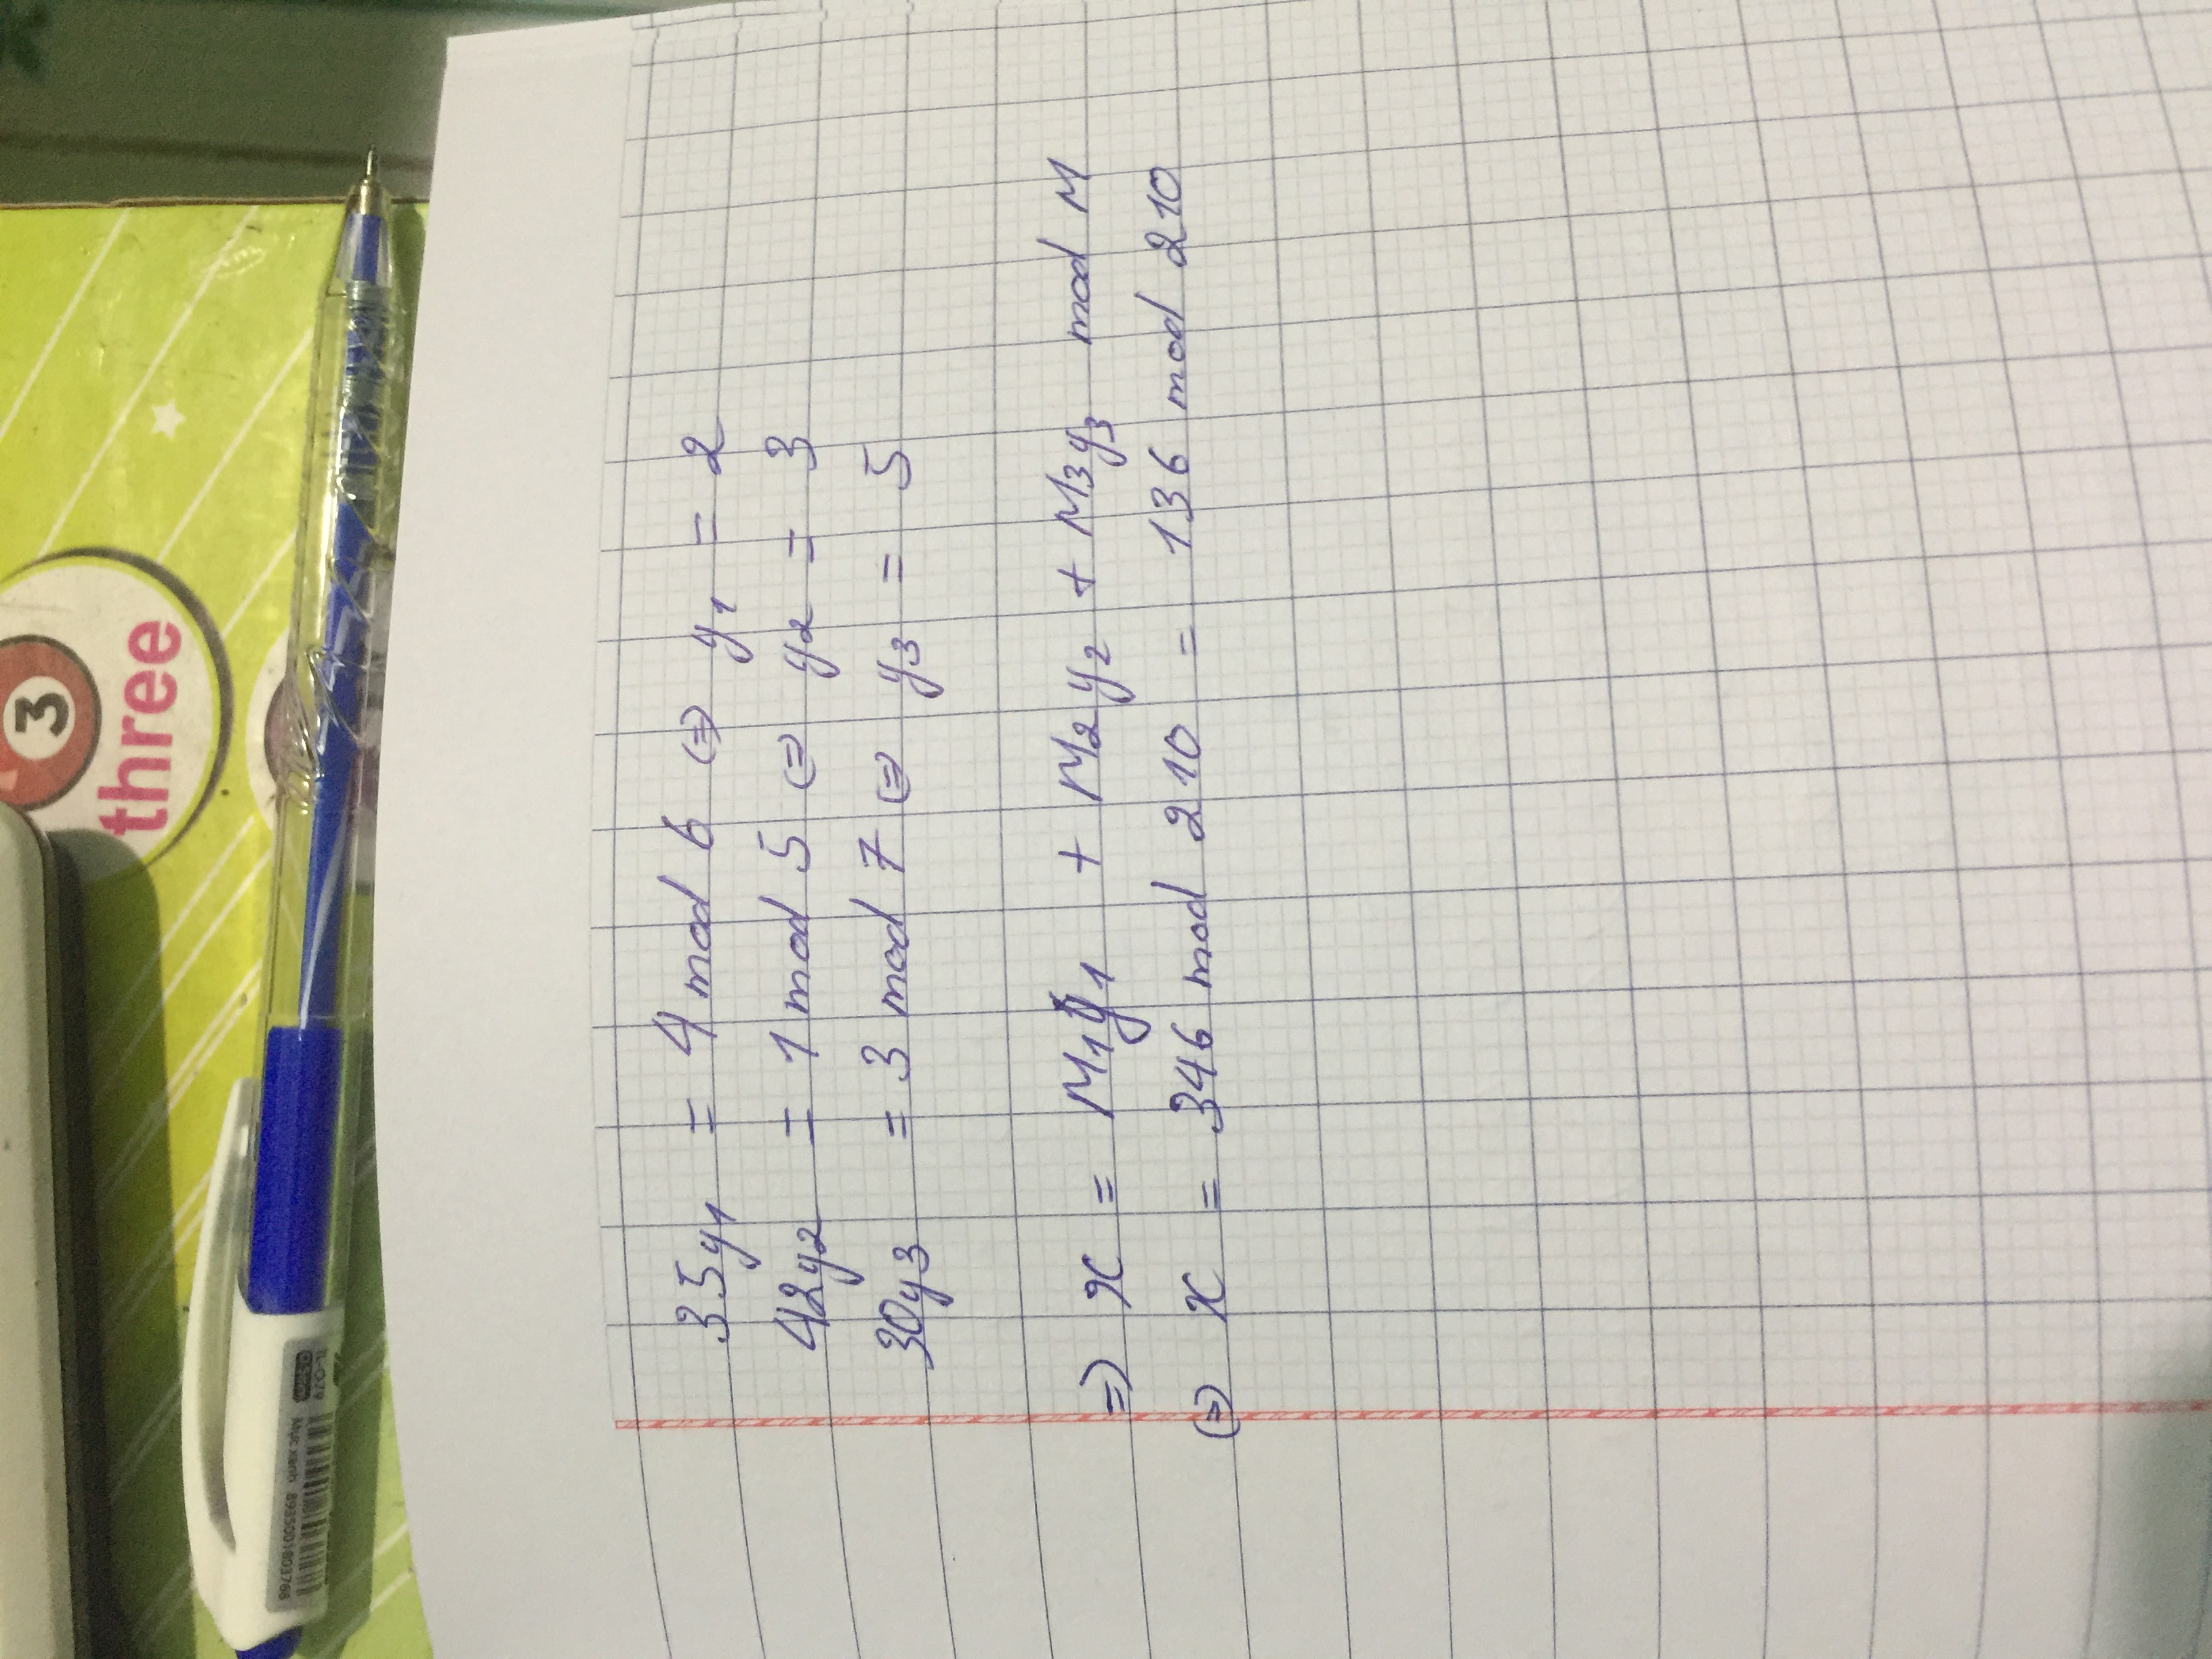 3
three
TL-079
0.5mm
Mực xanh
35y1 = 4 mod 6 (=) y1 = 2
42y2 = 1 mod 5 (=) y2 = 3
30y3 = 3 mod 7 (=) y3 = 5
=) x = M1y1 + M2y2 + M3y3 mod M
(=) x = 346 mod 210 = 136 mod 210